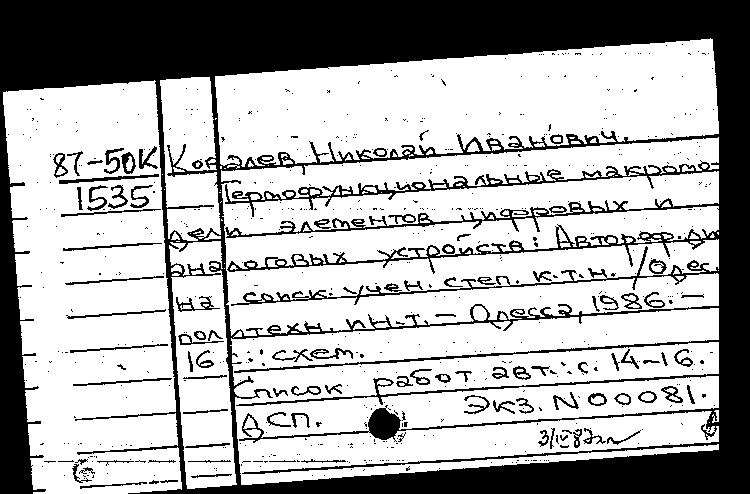 87-50К Ковалев, Николай Иванович.
1535 Термофункциональные макромо-
дели элементов цифровых и
аналоговых устройств: Автореф. ди
на соиск. учен. степ. к.т.н. /Одес.
политехн. ин-т. – Одесса, 1986. –
16 с.: схем.
Список работ авт.: с. 14-16.
ДСП. Экз. N 00081.